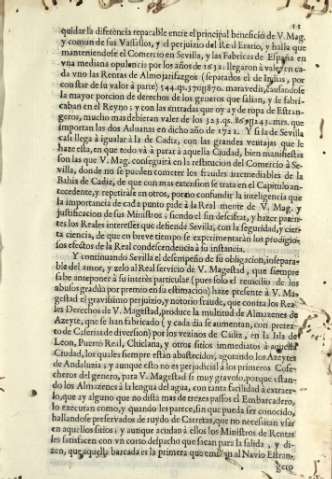 quidar la diferencia reparable entre el principal beneficio de V. Mag.
y comun de sus Vassallos, y el perjuizio del Real Erario, y halla que
manteniendose el Comercio en Sevilla, y las Fabricas de España en
vna mediana opulencia por los años de 1632. llegaron à valer en ca-
da vno las Rentas de Almojarifazgos (separados el de Indias, por
constar de su valor à parte) maravedis, causandose
la mayor porcion de derechos de los generos que salian, y se fabri-
caban en el Reyno; y con las entradas que oy ay de ropa de Estran-
geros, mucho mas debieran valer de los mrs. que
importan las dos Aduanas en dicho año de 1722. Y si la de Sevilla
casi llega à igualar à la de Cadiz, con las grandes ventajas que le
haze esta, en que todo và à parar à aquella Ciudad, bien manifiestas
son las que V. Mag. conseguirà en la restitucion del Comercio à Se-
villa, donde no se pueden cometer los fraudes irremediables de la
Bahia de Cadiz, de que con mas extension se trata en el Capitulo an-
tecedente, y repetiràse en otros, porque confundir la inteligencia que
la importancia de cada punto pide à la Real mente de V. Mag. y
justificacion de sus Ministros, siendo el fin descifrar, y hazer paten-
tes los Reales interesses que defiende Sevilla, con la seguridad, y cier-
ta ciencia, de que en breve tiempo se experimentaràn los prodigio-
sos efectos de la Real condescendencia à su instancia.
Y continuando Sevilla el desempeño de su obligacion, insepara-
ble del amor, y zelo al Real servicio de V. Magestad, que siempre
sabe anteponer à su interès particular (pues solo el remedio de los
abusos gradùa por premio en su estimacion) haze presente à V. Ma-
gestad el gravissimo perjuizio, y notorio fraude, que contra los Rea-
les Derechos de V. Magestad, produce la multitud de Almazenes de
Azeyte, que se han fabricado (y cada dia se aumentan, con pretex-
to de Caserias de diversion) por los vezinos de Cadiz, en la Isla de
Leon, Puerto Real, Chiclana, y otros sitios immediatos à aquella
Ciudad, los quales siempre estàn abastecidos, agotando los Azeytes
de Andaluzia; y aunque esto no es perjudicial à los primeros Cose-
cheros del genero, para V. Magestad si muy gravoso, porque estan-
do los Almazenes à la lengua del agua, con tanta facilidad à extraer-
lo, que ay alguno que no dista mas de trezes passos el Embarcadero,
lo executan como, y quando les parece, sin que pueda ser conocido,
hallandose preservados de ruydo de Carretas, que no necessitan vsar
en aquellos sitios; y aunque acudan à ellos los Ministros de Rentas
les satisfacen con vn corto despacho que sacan para la salida, y di-
zen, que aquella barcada es la primera que embian al Navio Estran-
gero